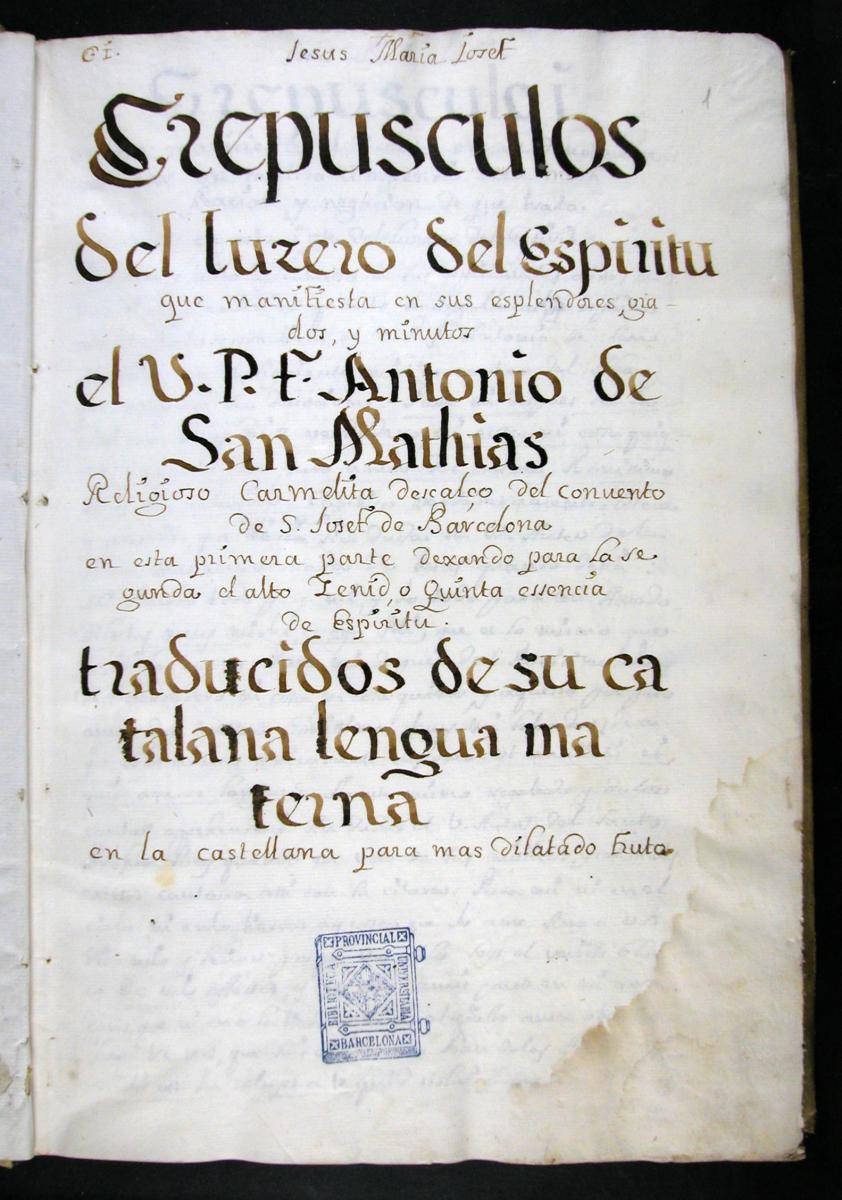 Jesus Maria Josef
1
Crepusculos
del luzero del Espiritu
que manifiesta en sus esplendores, gra-
dos, y minutos
el V. P. F. Antonio de
San Mathias
Religioso Carmelita descalço del convento
de S. Josef de Barcelona
en esta primera parte dexando para la se
gunda el alto Zenid, o Quinta essencia
de Espiritu.
traducidos de su ca
talana lengua ma
terna
en la castellana para mas dilatado fruto
PROVINCIAL
BIBLIOTECA
UNIVERSITARIA
BARCELONA